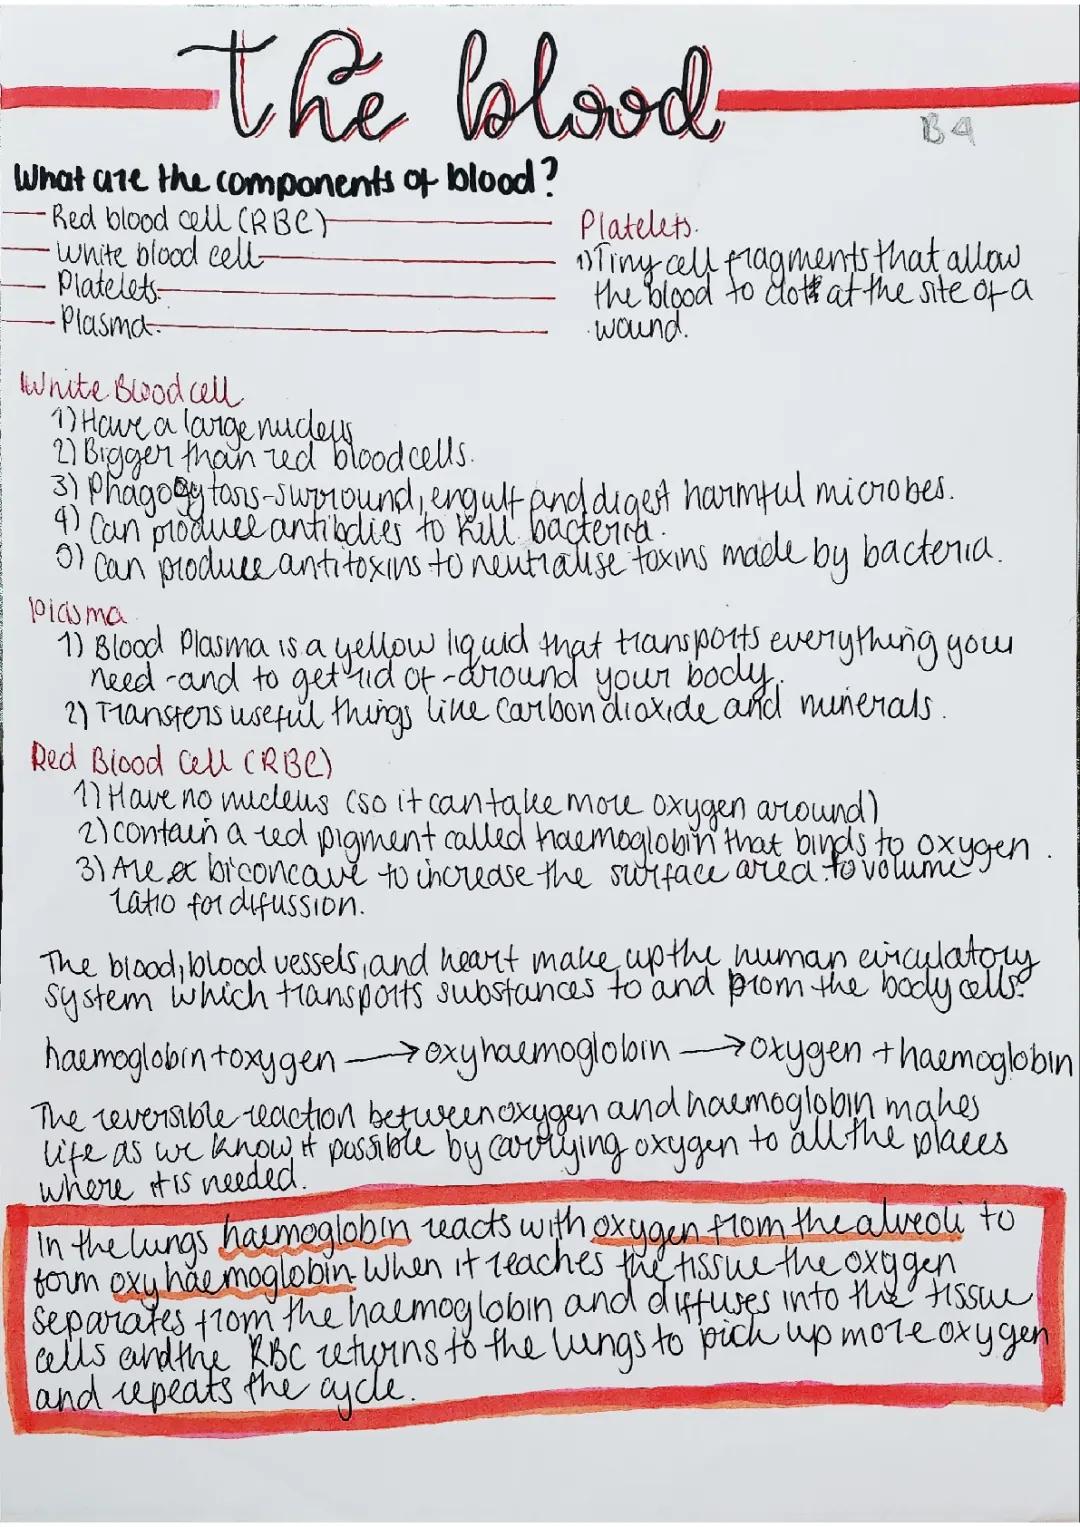 The blood
B4
What are the components of blood?
- Red blood cell (RBC)
- White blood cell
- Platelets
- Plasma
Platelets.
1) Tiny cell fragments that allow
the blood to clot at the site of a
wound.
White Blood cell
1) Have a large nucleus
2) Bigger than red blood cells.
3) Phagocytosis - surround, engulf and digest harmful microbes.
4) Can produce antibdies to kill bacteria.
5) Can produce antitoxins to neutralise toxins made by bacteria.
Plasma
1) Blood Plasma is a yellow liquid that transports everything your
need - and to get rid of - around your body.
2) Transfers useful things like carbon dioxide and minerals.
Red Blood Cell (RBC)
1) Have no nucleus (so it can take more oxygen around)
2) contain a red pigment called haemoglobin that binds to oxygen.
3) Are biconcave to increase the surface area to volume
ratio for difussion.
The blood, blood vessels, and heart make up the human circulatory
system which transports substances to and from the body cells.
haemoglobin + oxygen → oxyhaemoglobin → oxygen + haemoglobin
The reversible reaction between oxygen and haemoglobin makes
life as we know it possible by carrying oxygen to all the places
where it is needed.
In the lungs haemoglobin reacts with oxygen from the alveoli to
form oxyhaemoglobin. When it reaches the tissue the oxygen
separates from the haemoglobin and diffuses into the tissue
cells and the RBC returns to the lungs to pick up more oxygen
and repeats the cycle.